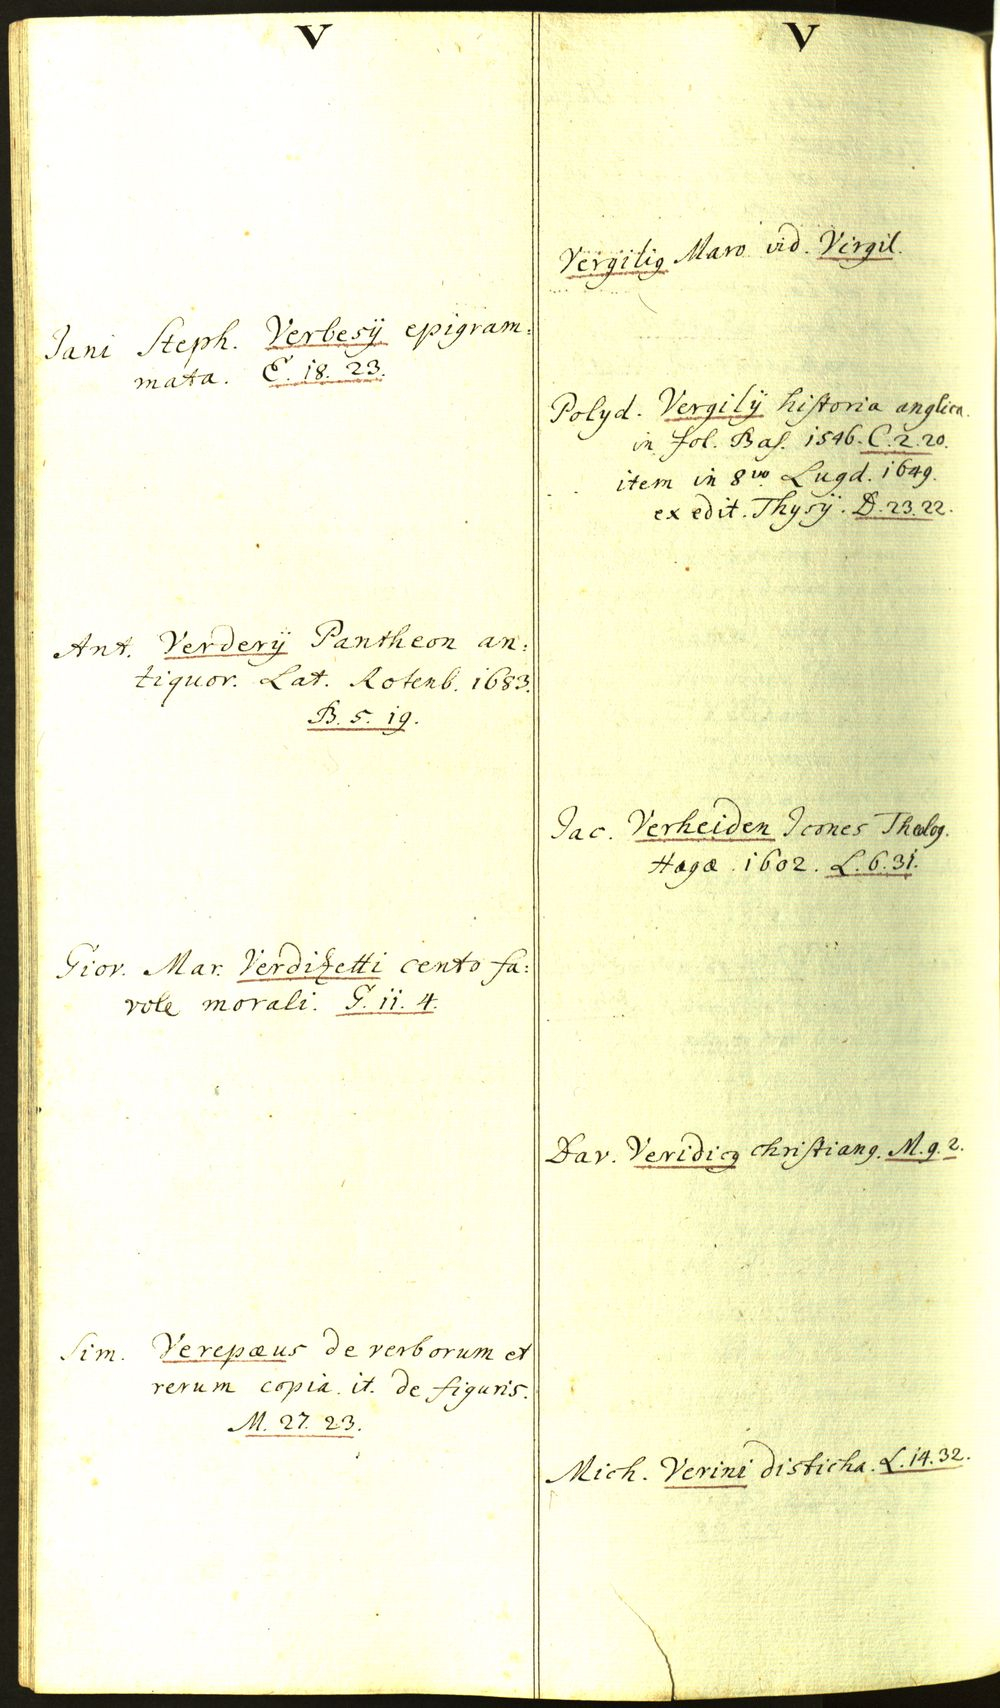 V
Jani Steph. Verbesÿ epigram:
mata. E. 18. 23.
Ant. Verderÿ Pantheon an:
tiquor. Lat. Rotenb. 1683.
B. 5. 19.
Giov. Mar. Verdizetti cento fa:
vole morali. G. 11. 4.
Sim. Verepæus de verborum et
rerum copia. it. de figuris.
M. 27. 23.
V
Vergiliꝰ Maro vid. Virgil.
Polyd. Vergilÿ hiſtoria anglica.
in fol. Baſ. 1546. C. 2. 20.
item in 8vo Lugd. 1649.
ex edit. Thysÿ. D. 23. 22.
Jac. Verheiden Icones Theolog.
Hagæ. 1602. L. 6. 31.
Dav. Veridicꝰ chriſtianꝰ. M. 9. 2.
Mich. Verini disticha. L. 14. 32.